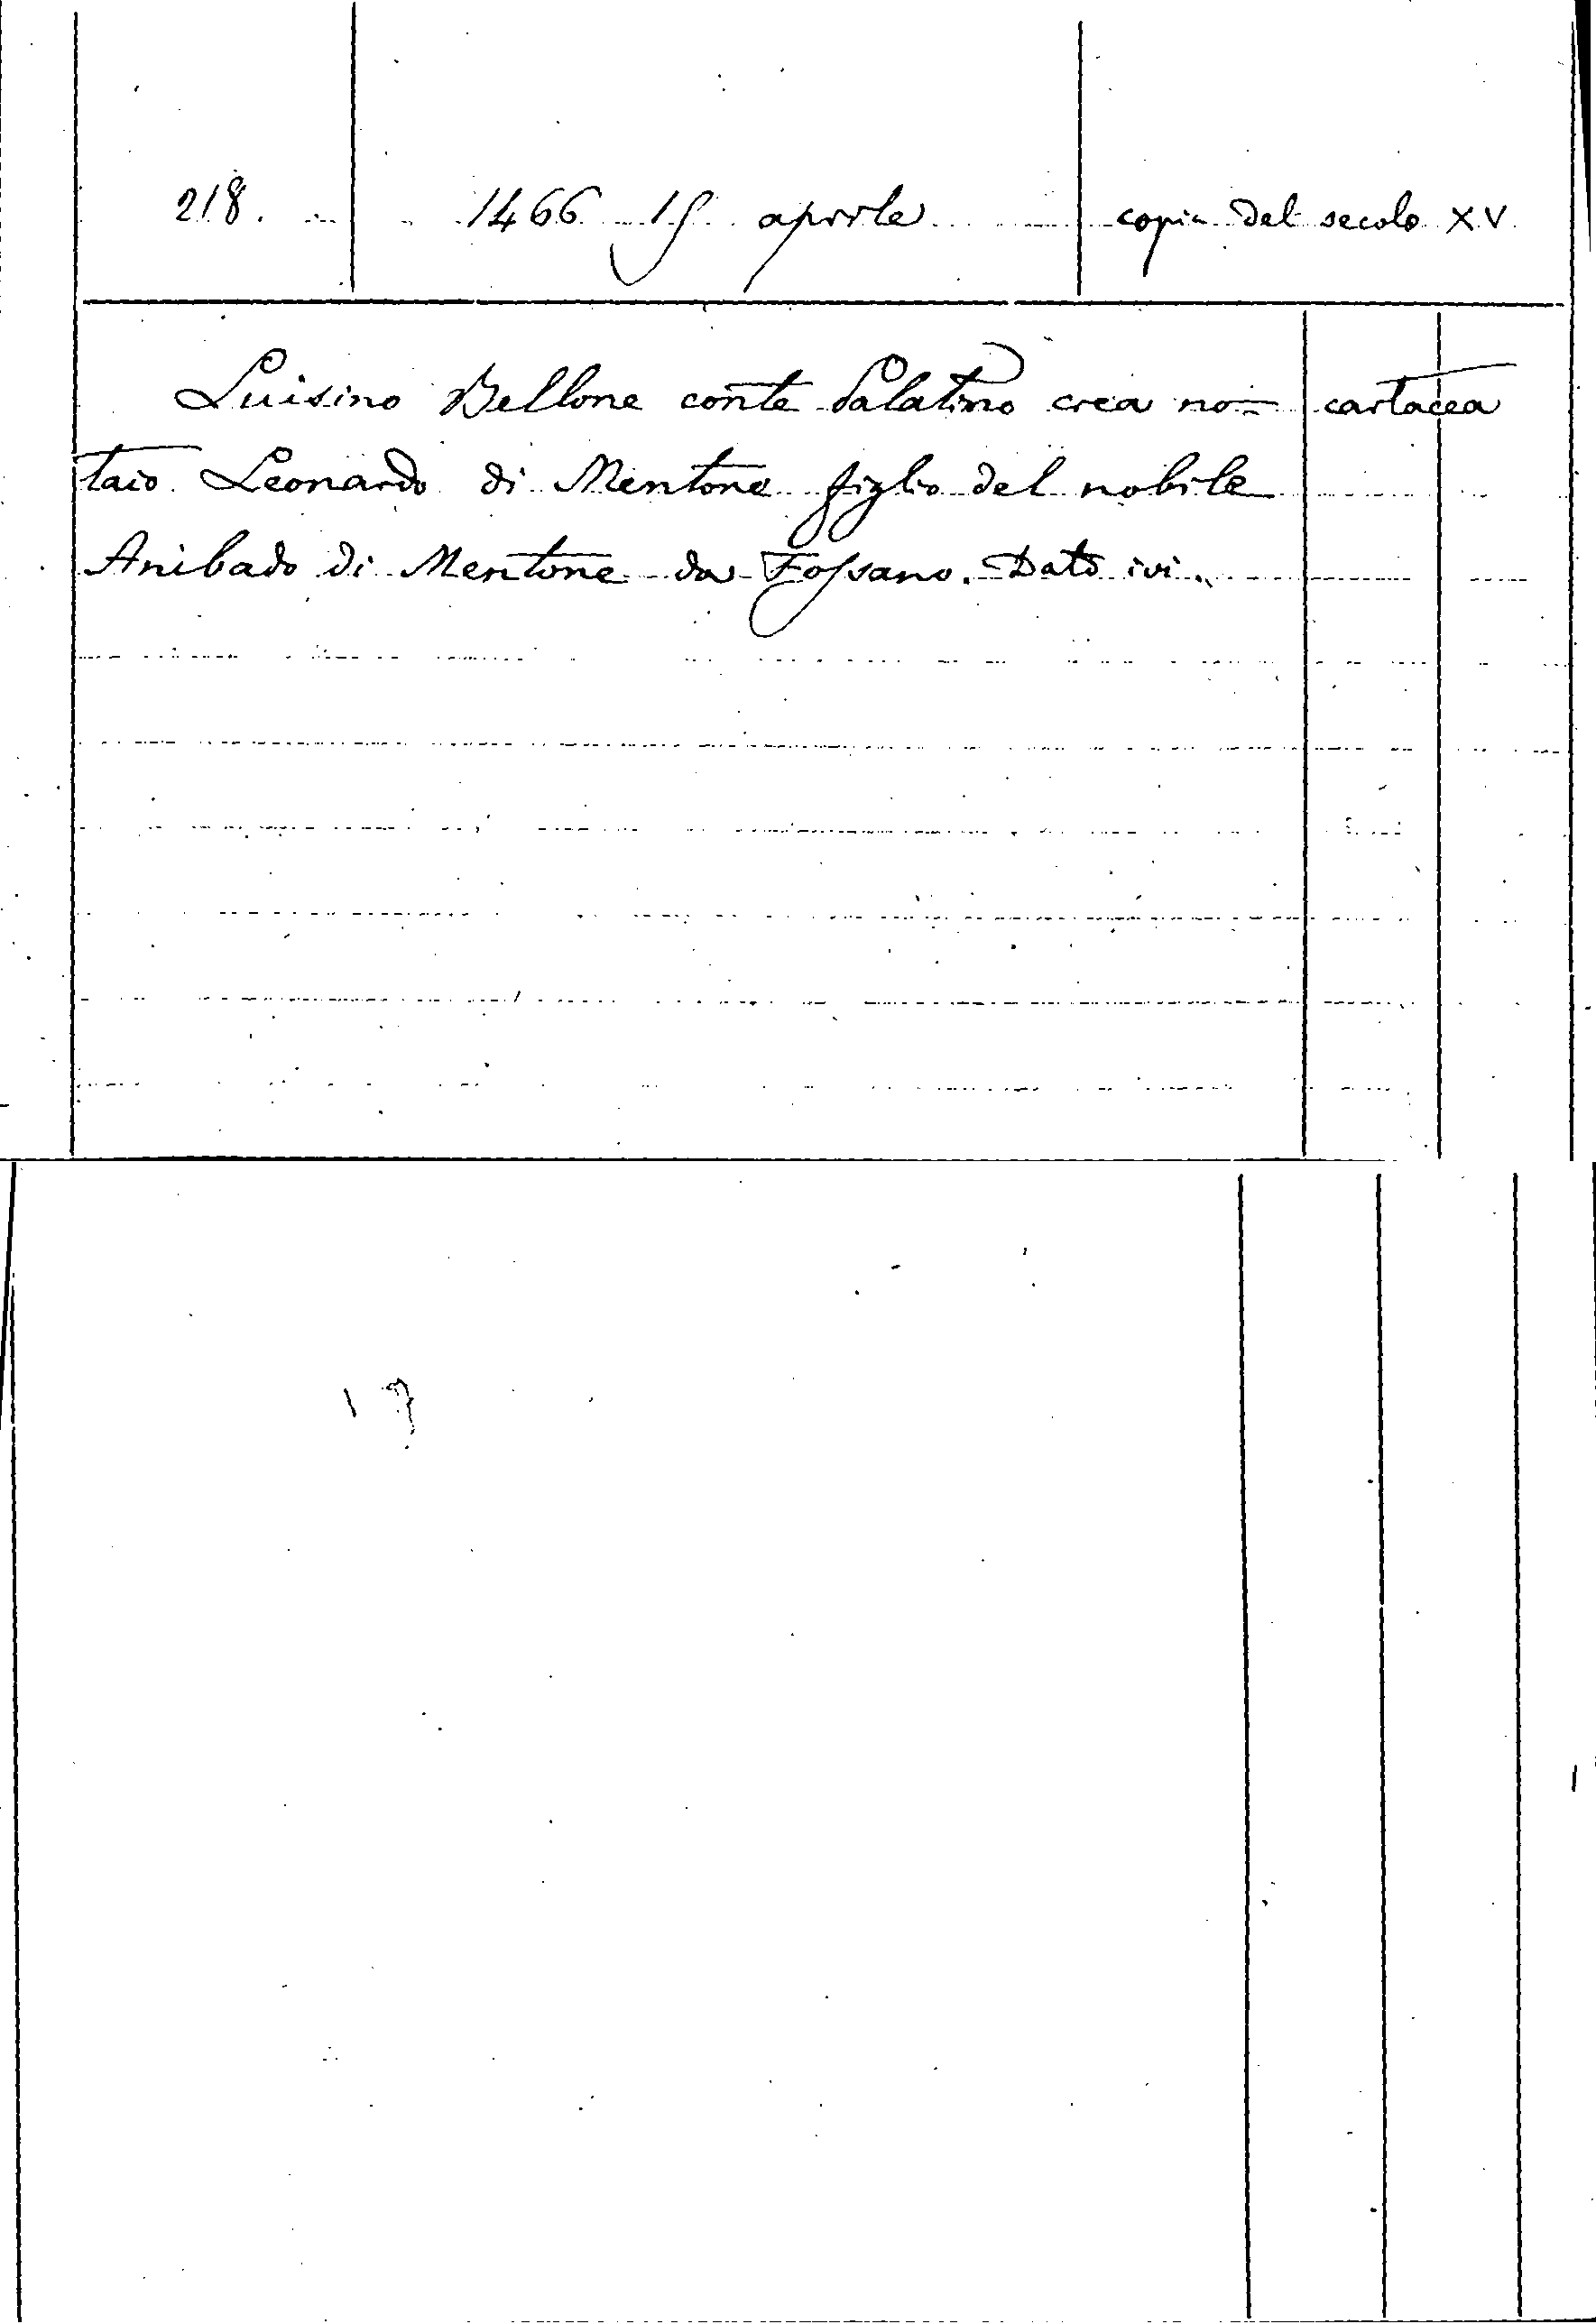 218. 1466 15 aprile copia del secolo XV
Luisino Bellone conte Palatino crea no= cartacea
taio Leonardo di Mentone figlio del nobile
Anibado di Mentone da Fossano. Dato ivi.